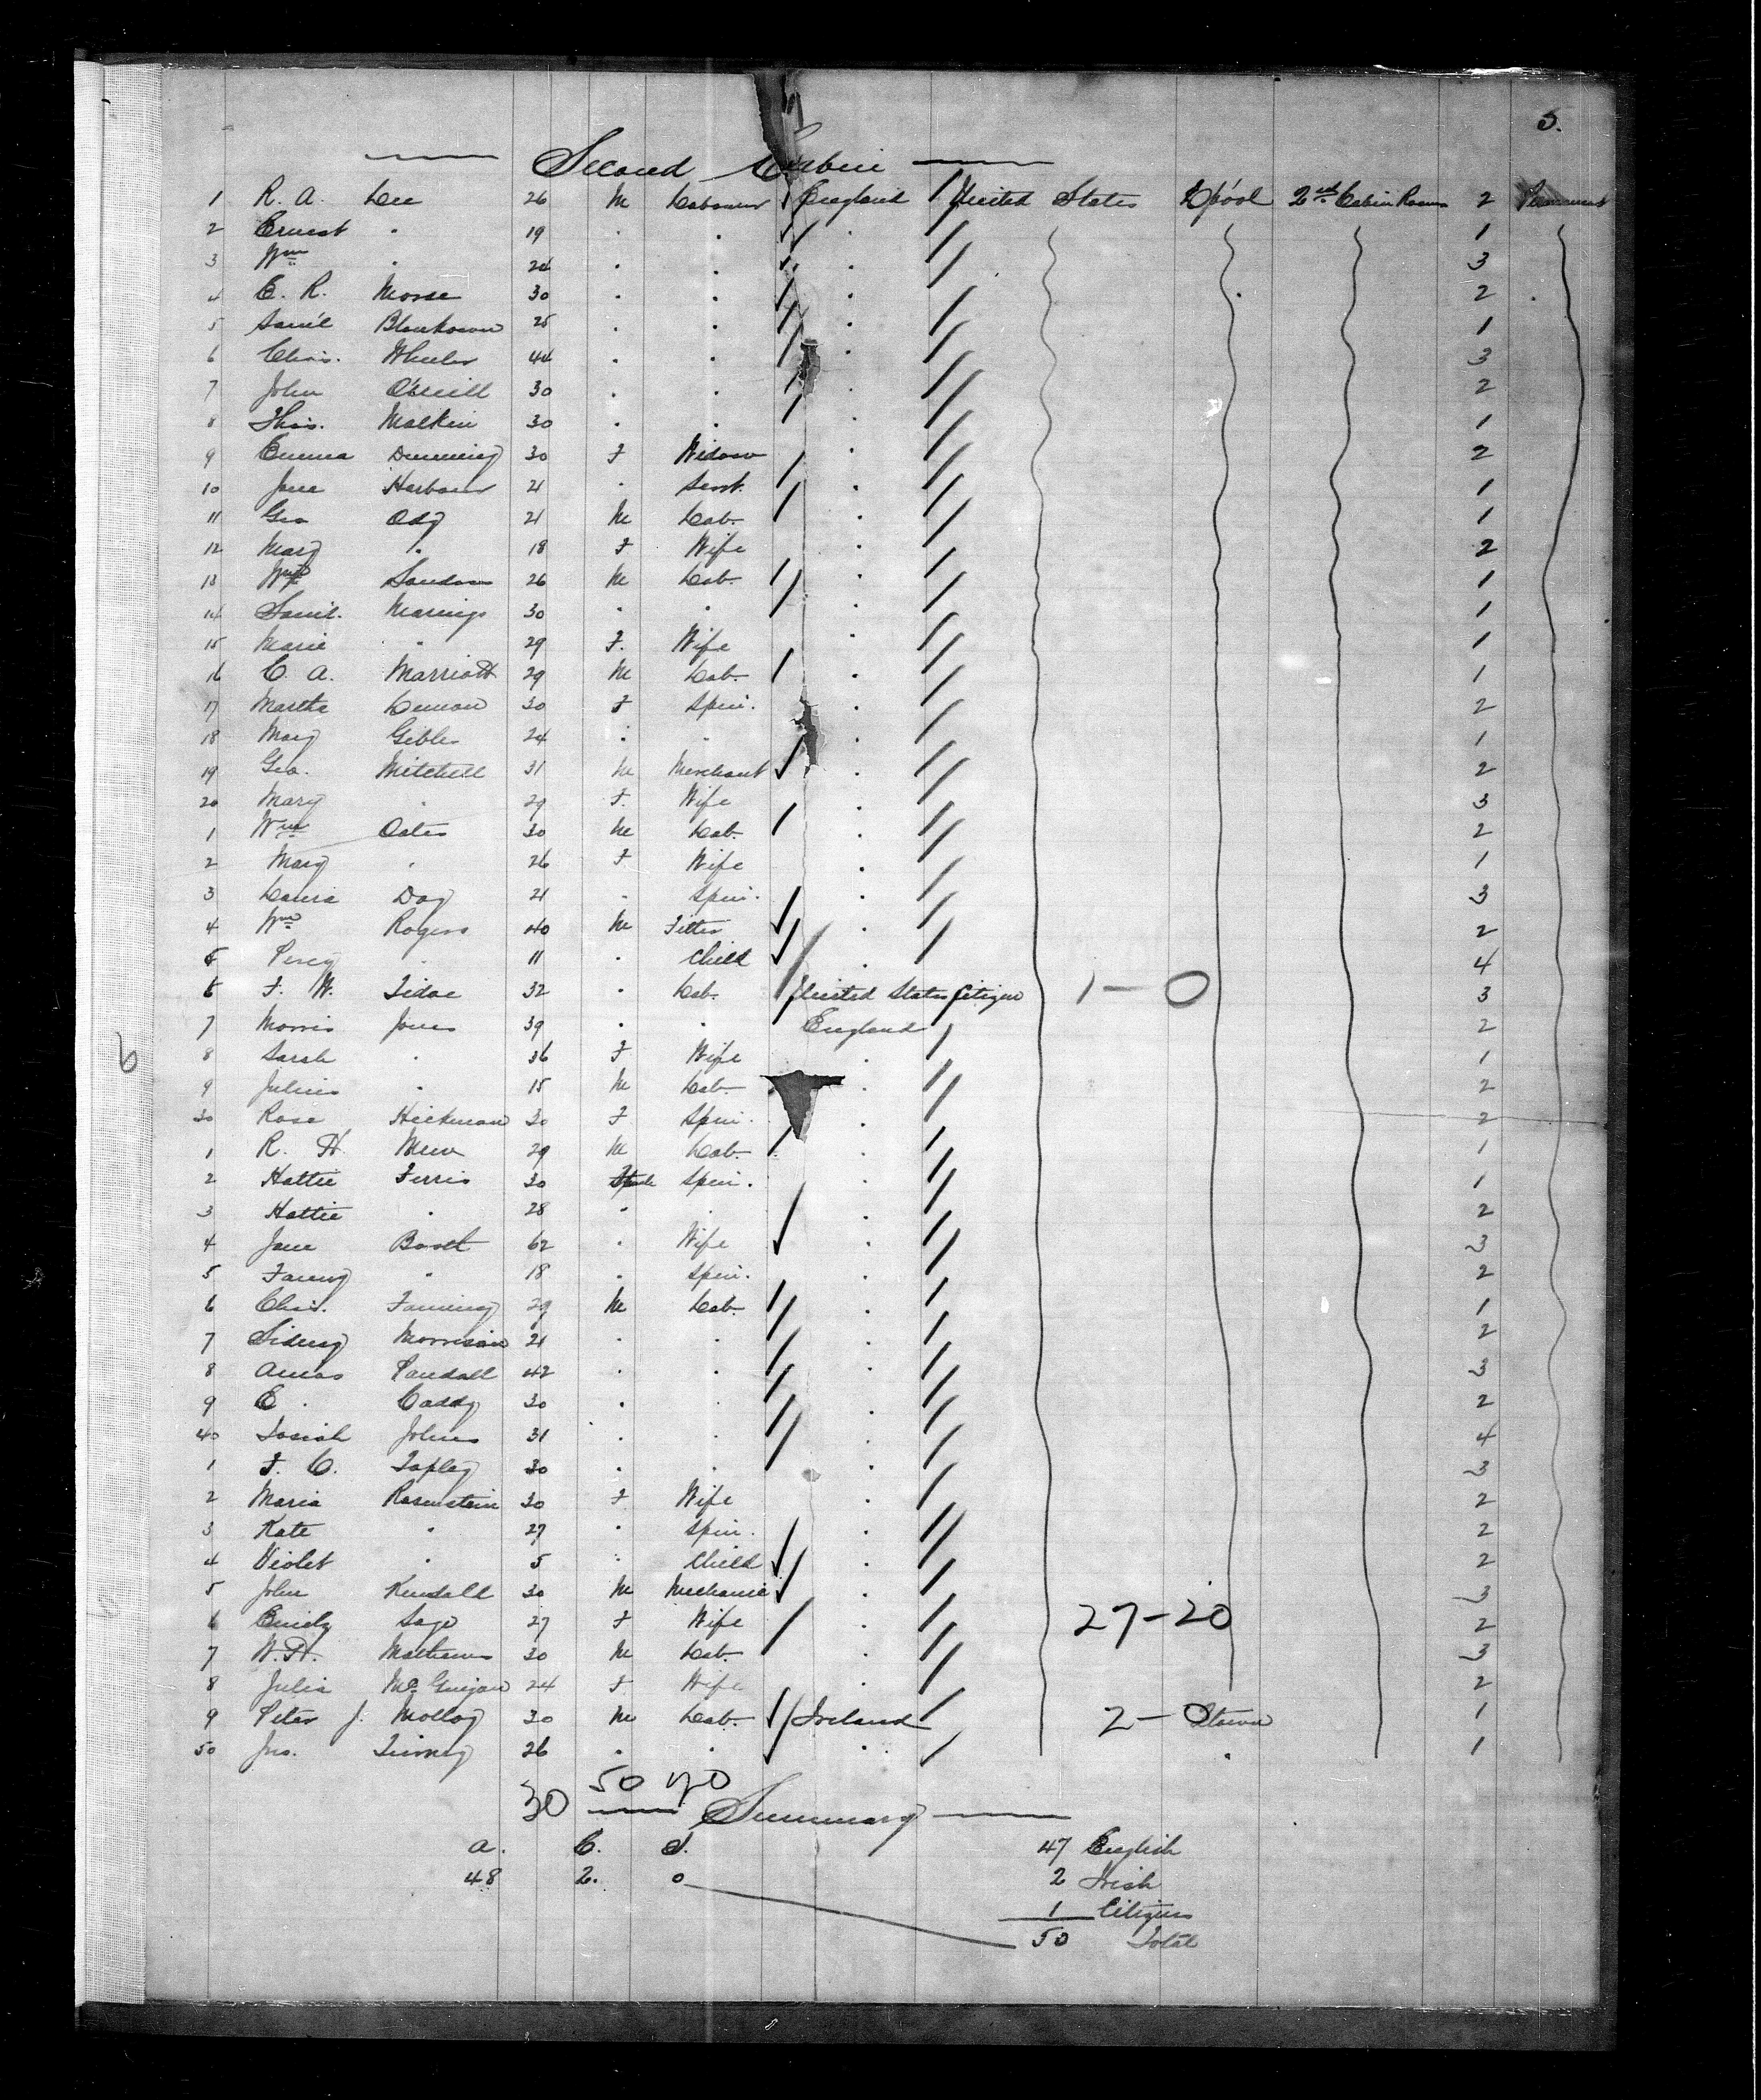 5.
Second Cabin
1 R. A. Lee 26 M Labourer England United States L'pool 2nd Cabin Rooms 2
2 Ernest " 19 " " " 1
3 Wm " 24 " " " 3
4 E. R. Morse 30 " " " 2
5 Sam'l 25 " " " 1
6 Chas. Wheeler 44 " " " 3
7 John O'Neill 30 " " " 2
8 Thos. Malkin 30 " " " 1
9 Emma 30 F Widow " 2
10 Jane Harbour 21 " Servt. " 1
11 Geo 21 M Lab. " 1
12 Mary " 18 F Wife " 2
13 Wm 26 M Lab. " 1
14 Saml. 30 " " " 1
15 Marie " 29 F. Wife " 1
16 C. A. Marriott 29 M Lab. " 1
17 Martha Leman 30 F Spin. " 2
18 Mary 24 " " " 1
19 Geo. Mitchell 31 M Merchant " 2
20 Mary " 29 F. Wife " 3
1 Wm Oates 30 M Lab. " 2
2 Mary " 26 F Wife " 1
3 Laura Day 21 " Spin. " 3
4 Wm Rogers 40 M Fitter " 2
5 Percy " 11 " Child " 4
6 F. W. 32 " Lab. United States Citizen 1-0 3
7 Morris Jones 39 " " England 2
8 Sarah " 36 F Wife " 1
9 Julius " 15 M Lab. " 2
30 Rose Hickman 30 F Spin. " 2
1 R. H. Mew 29 M Lab. " 1
2 Hattie Ferris 30 Spin. " 1
3 Hattie " 28 " " " 2
4 Jane 62 " Wife " 3
5 Fanny " 18 " Spin. " 2
6 Chas. Fanning 29 M Lab. " 1
7 Sidney Morrison 21 " " " 2
8 Amos 42 " " " 3
9 E. Caddy 30 " " " 2
40 Josiah Johns 31 " " " 4
1 F. C. Tapley 30 " " " 3
2 Maria Rosenstein 30 F Wife " 2
3 Kate " 27 " Spin. " 2
4 Violet " 5 " Child " 2
5 John Kendall 30 M Mechanic " 3
6 Emily Sage 27 F Wife " 27-20 2
7 W. H. Mathews 30 M Lab. " 3
8 Julia McGuigan 24 F Wife " 2
9 Peter J. Molloy 30 M Lab. Ireland 2-0 1
50 Jno. Tierney 26 " " " " 1
30 50
Summary
a. C. I. 47 English
48 2. 0 2 Irish
1 Citizens
50 Total
6